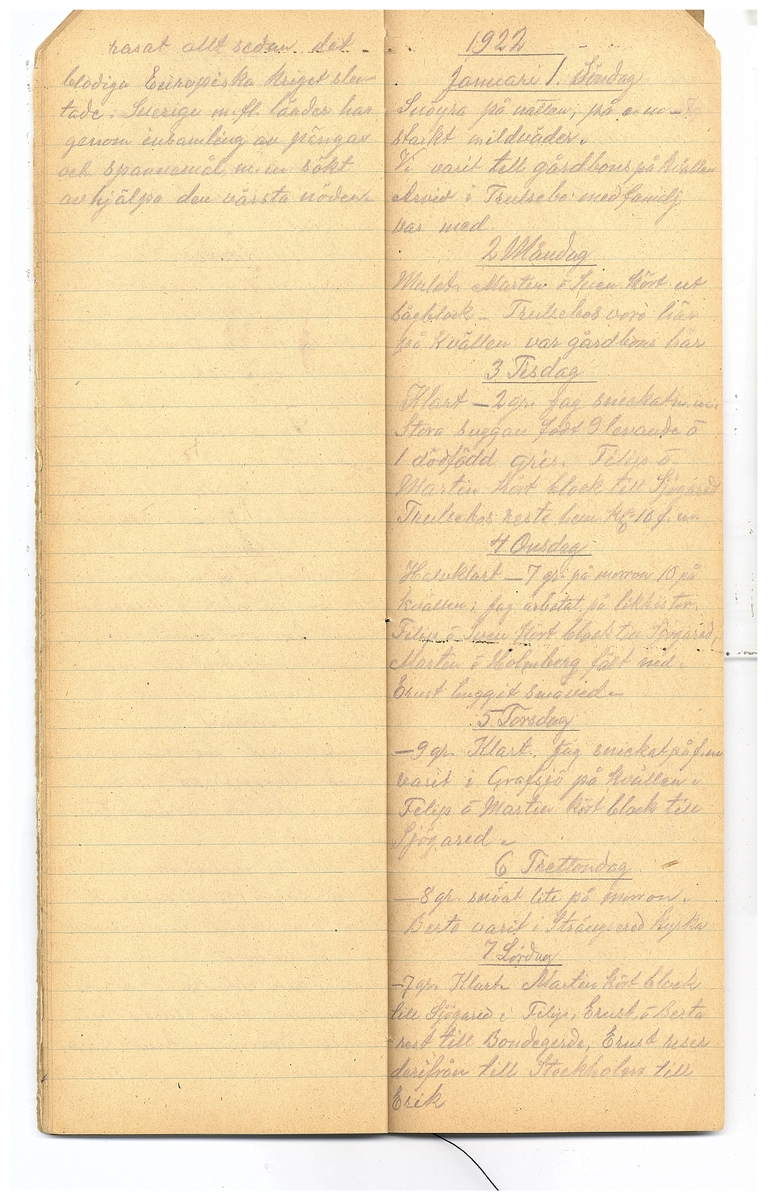 rasat allt sedan det
blodiga Europeiska kriget slu-
tade. Sverige m.fl. länder har
genom insamling av pängar
och spannemål m.m sökt
avhjälpa den värsta nöden
1922
Januari 1. Söndag
Snöyra på natten, på e.m
starkt mildväder.
Vi varit till gårdbons på kvällen
Arvid i Trulsebo med familj
var med
2 Måndag
Mulet. Martin o Sven kört ut
sågblock – Trulsebos voro här
på kvällen var gårdbons här
3 Tisdag
Klart – 2 gr. Jag snickat
Stora suggan född 9 levande o
1 dödfödd gris. Filip o
Martin kört block till Sjögared
Trulsebos reste hem kl 10 f.m.
4 Onsdag
Halvklart – 7 gr. på morron 10 på
kvällen; Jag arbetat på likkistor.
Filip o Sven kört block till Sjögared,
Martin o Holmberg fält ned.
Ernst huggit smaved
5 Torsdag
– 9 gr. Klart. Jag snickat på f.m
varit i Grafsjö på kvällen
Filip o Martin kört block till
Sjögared
6 Trettondag
– 8 gr. snöat lite på morron.
Berta varit i Strängsered kyrka
7 Lördag
– 7 gr. Klart Martin kört block
till Sjögared; Filip, Ernst, o Berta
rest till Bondegerde, Ernst reser
derifrån till Stockholm till
Erik